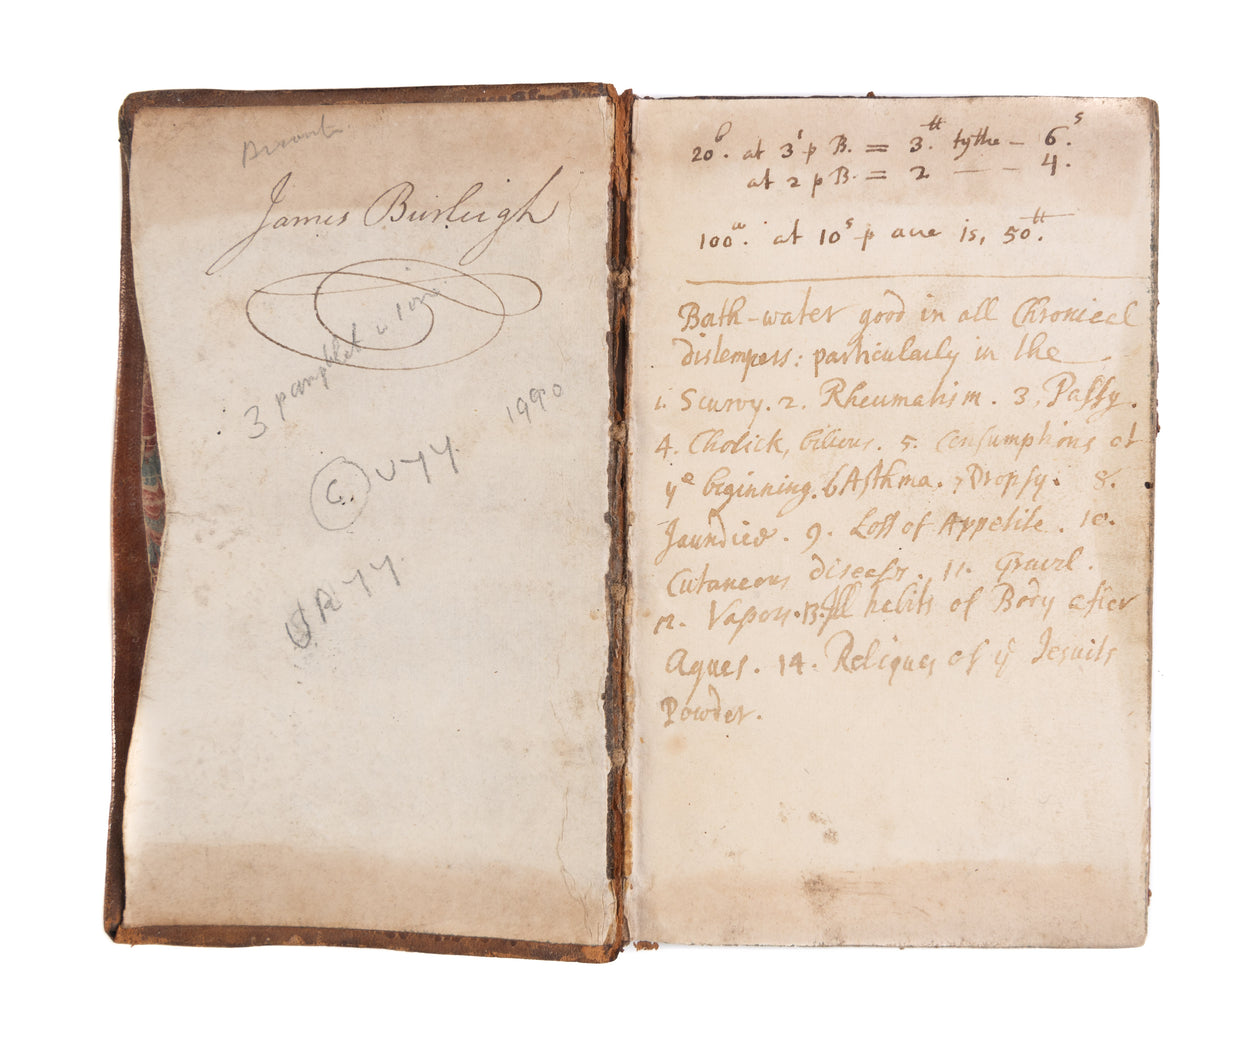 James Burleigh
3 pamphlets in 1
1990
G. U-77
UR-77.
20b. at 3s p B. = 3.tt tythe — 6.s
at 2 p B. = 2 — — 4.
100a. at 10s p acre is, 50tt.
Bath-water good in all Chronical
distempers: particularly in the
1. Scurvy. 2. Rheumatism. 3, Palsy.
4. Cholick, bilious. 5. Consumptions at
ye beginning. 6 Asthma. 7 Dropsy. 8.
Jaundice. 9. Loss of Appetite. 10.
Cutaneous diseases. 11. Gravel.
12. Vapors. 13. Ill habits of Body after
Agues. 14. Reliques of ye Jesuits
Powder.